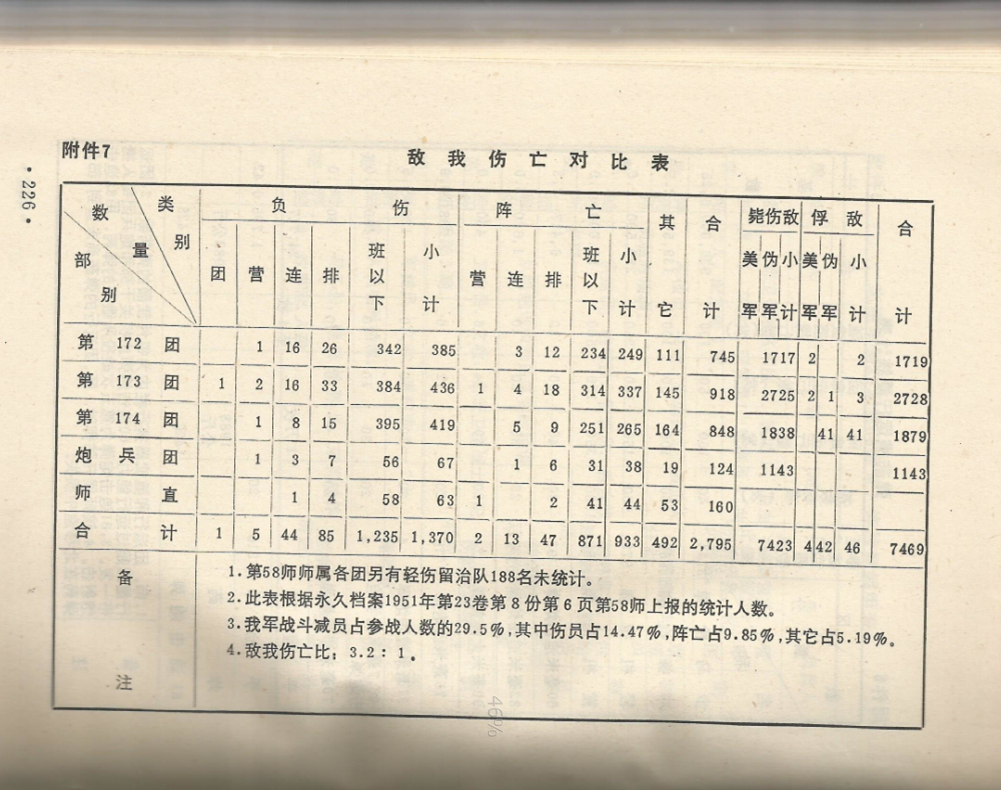 附件7
敌我伤亡对比表
·226·
数量 类别 部别 负伤 阵亡 其它 合计 毙伤敌 俘敌 合计
团 营 连 排 班以下 小计 营 连 排 班以下 小计 美军 伪军 小计 美军 伪军 小计
第172团 1 16 26 342 385 3 12 234 249 111 745 1717 2 2 1719
第173团 1 2 16 33 384 436 1 4 18 314 337 145 918 2725 2 1 3 2728
第174团 1 8 15 395 419 5 9 251 265 164 848 1838 41 41 1879
炮兵团 1 3 7 56 67 1 6 31 38 19 124 1143 1143
师直 1 4 58 63 1 2 41 44 53 160
合计 1 5 44 85 1,235 1,370 2 13 47 871 933 492 2,795 7423 4 42 46 7469
备注
1.第58师师属各团另有轻伤留治队188名未统计。
2.此表根据永久档案1951年第23卷第8份第6页第58师上报的统计人数。
3.我军战斗减员占参战人数的29.5%,其中伤员占14.47%,阵亡占9.85%,其它占5.19%。
4.敌我伤亡比:3.2:1。
46%